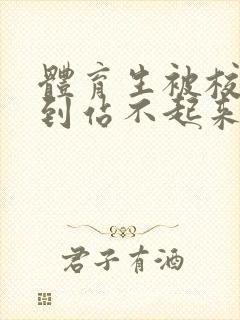 體育生被校
到佔不起來
君子有酒